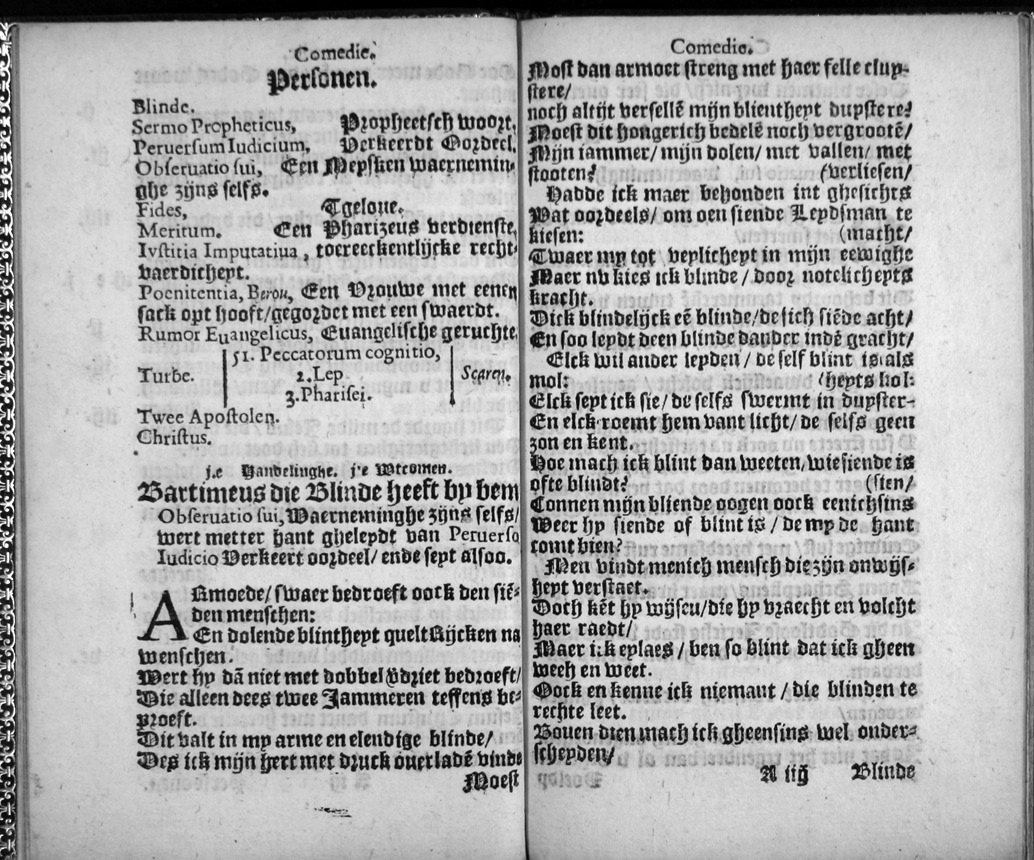 Comedie.
Personen.
Blinde.
Sermo Propheticus, Propheetsch woort.
Peruersum Iudicium, Verkeerdt Oordeel.
Obseruatio sui, Een Meysken waernemin-
ghe zijns selfs.
Fides, Tgeloue.
Meritum. Een Pharizeus verdienste.
Ivstitia Imputatiua, toereeckentlijcke recht-
vaerdicheyt.
Poenitentia, Berou, Een Vrouwe met eenen
sack opt hooft/gegordet met een swaerdt.
Rumor Euangelicus, Euangelische geruchte.
51. Peccatorum cognitio,
Turbe. 2. Ley Scaren.
3. Pharisei.
Twee Apostolen.
Christus.
j.e Handelinghe. j'e Wtcomen.
Bartimeus die Blinde heeft by hem
Obseruatio sui, Waerneminghe zijns selfs/
wert metter hant gheleydt van Peruerso
Iudicio Verkeert oordeel/ ende seyt alsoo.
ARmoede/ swaer bedroeft oock den siē-
den menschen:
En dolende blintheyt quelt Rijcken na
wenschen.
Wert hy dā niet met dobbel v̄driet bedroeft/
Die alleen dees twee Jammeren teffens be-
proeft.
Dit valt in my arme en elendige blinde/
Des ick mijn hert met druck ouerladē vinde
Moest
Comedie.
Most dan armoet streng met haer felle cluy-
stere/
noch altijt versellē mijn blientheyt duystere?
Moest dit hongerich bedelē noch vergrootē/
Mijn iammer/ mijn dolen/ met vallen/ met
stooten? (verliesen/
Hadde ick maer behouden int ghesichts
Wat oordeels/ om oen siende Leydsman te
kiesen: (macht/
Twaer my tot veylicheyt in mijn eewighe
Maer nv kies ick blinde/ door notelicheyts
kracht.
Dick blindelijck eē blinde/de sich siēde acht/
En soo leydt deen blinde dander indē gracht/
Elck wil ander leyden/ de self blint is als
mol: (heyts hol:
Elck seyt ick sie/ de selfs swermt in duyster-
En elck roemt hem vant licht/ de selfs geen
zon en kent.
Hoe mach ick blint dan weeten, wie siende is
ofte blindt? (sien/
Connen mijn bliende oogen oock eenichsins
Weer hy siende of blint is/ de my de hant
comt bien?
Men vindt menich mensch die zijn onwijs-
heyt verstaet.
Doch kēt hy wijsen/die hy vraecht en volcht
haer raedt/
Maer ick eylaes/ ben so blint dat ick gheen
weeh en weet.
Oock en kenne ick niemant/ die blinden te
rechte leet.
Bouen dien mach ick gheensins wel onder-
scheyden/
A iij Blinde